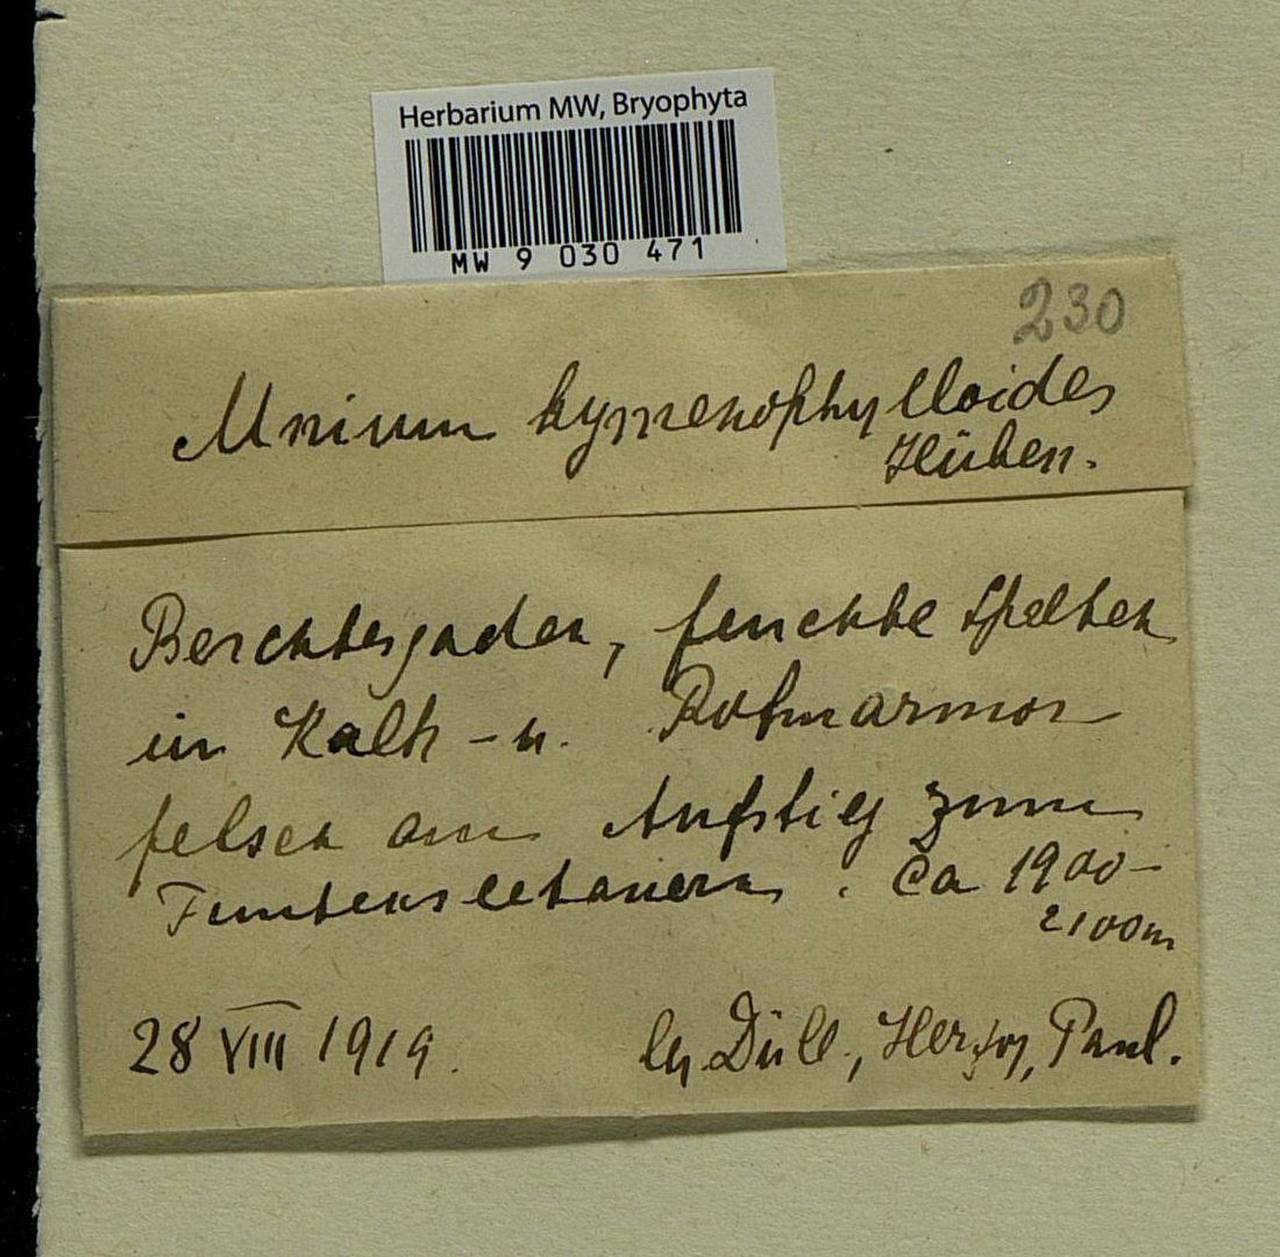 Herbarium MW, Bryophyta
MW 9 030 471
230
Mnium hymenophylloides
Hüben.
Berchtesgaden, feuchte Spalten
in Kalk - u. Rotmarmor
felsen am Aufstieg zum
Funtenseetauern. Ca 1900-
2100m
28 VIII 1919.
lg. Düll., Herzog, Paul.